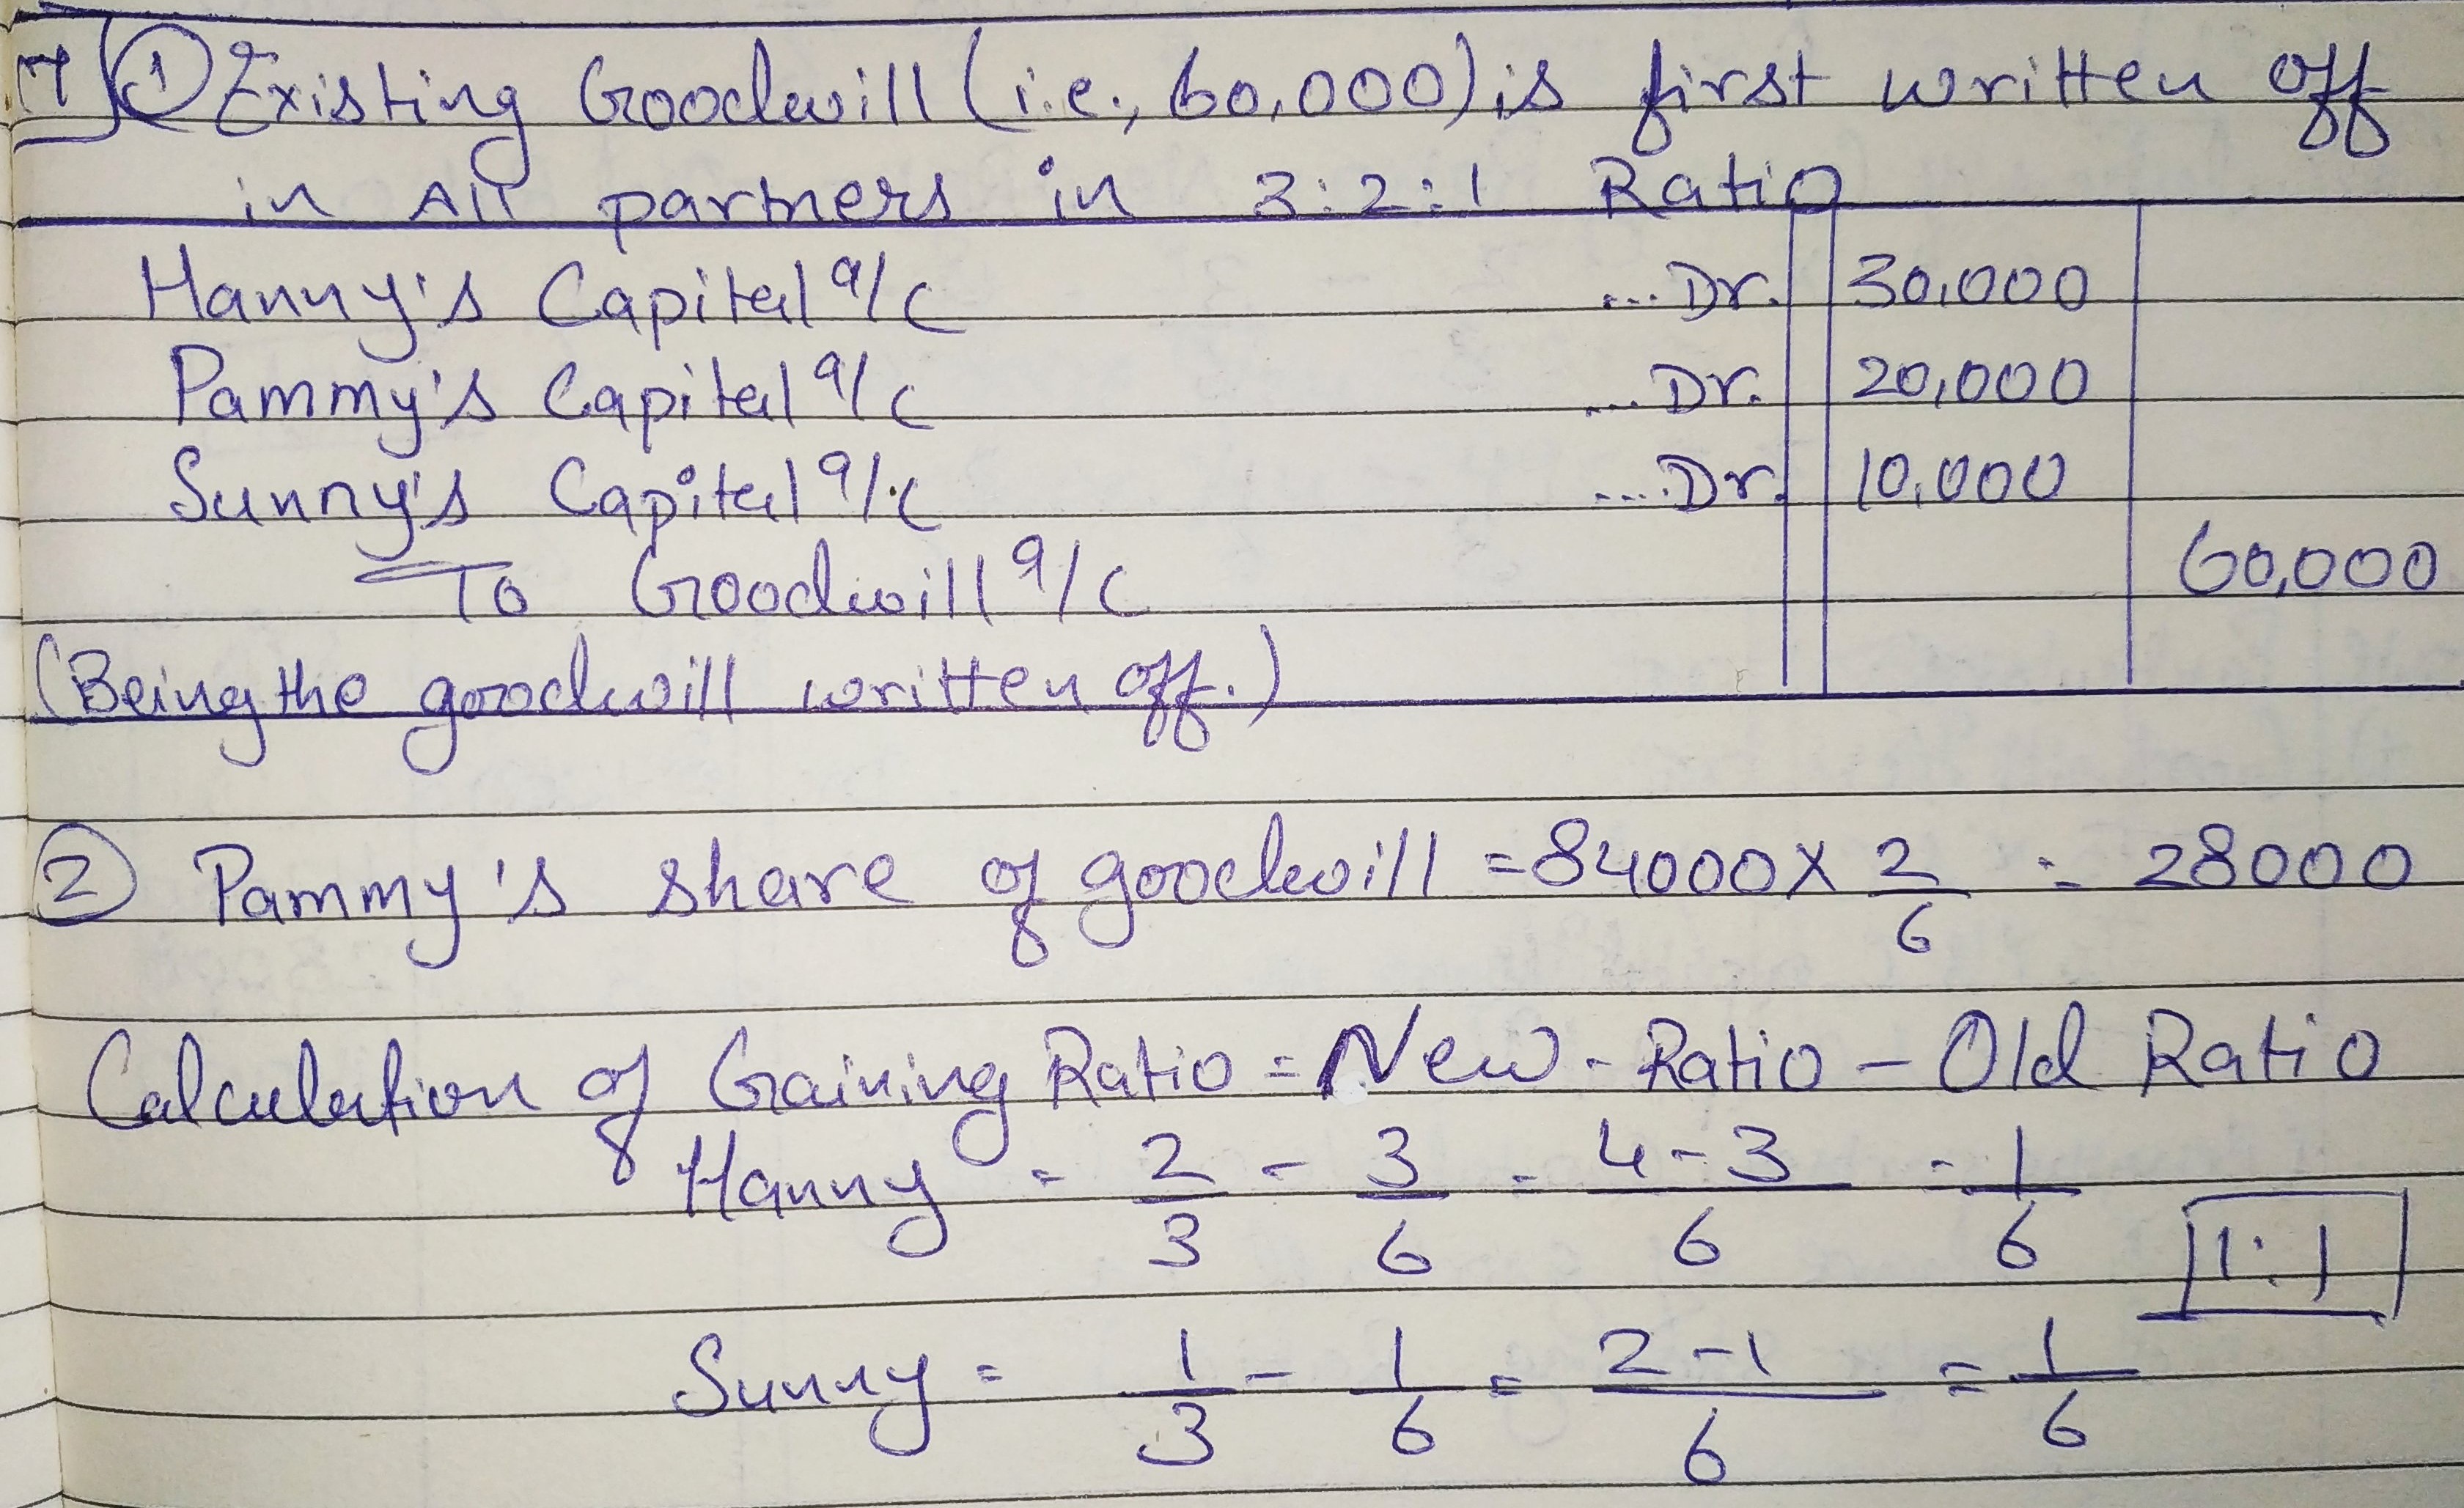 17) ① Existing Goodwill (i.e., 60,000) is first written off
in All partners in 3:2:1 Ratio
Hanny's Capital a/c ... Dr. 30,000
Pammy's Capital a/c ... Dr. 20,000
Sunny's Capital a/c ... Dr. 10,000
To Goodwill a/c 60,000
(Being the goodwill written off.)
② Pammy's share of goodwill = 84000 × 2/6 = 28000
Calculation of Gaining Ratio = New - Ratio - Old Ratio
Hanny = 2/3 - 3/6 = 4-3/6 = 1/6
1:1
Sunny = 1/3 - 1/6 = 2-1/6 = 1/6